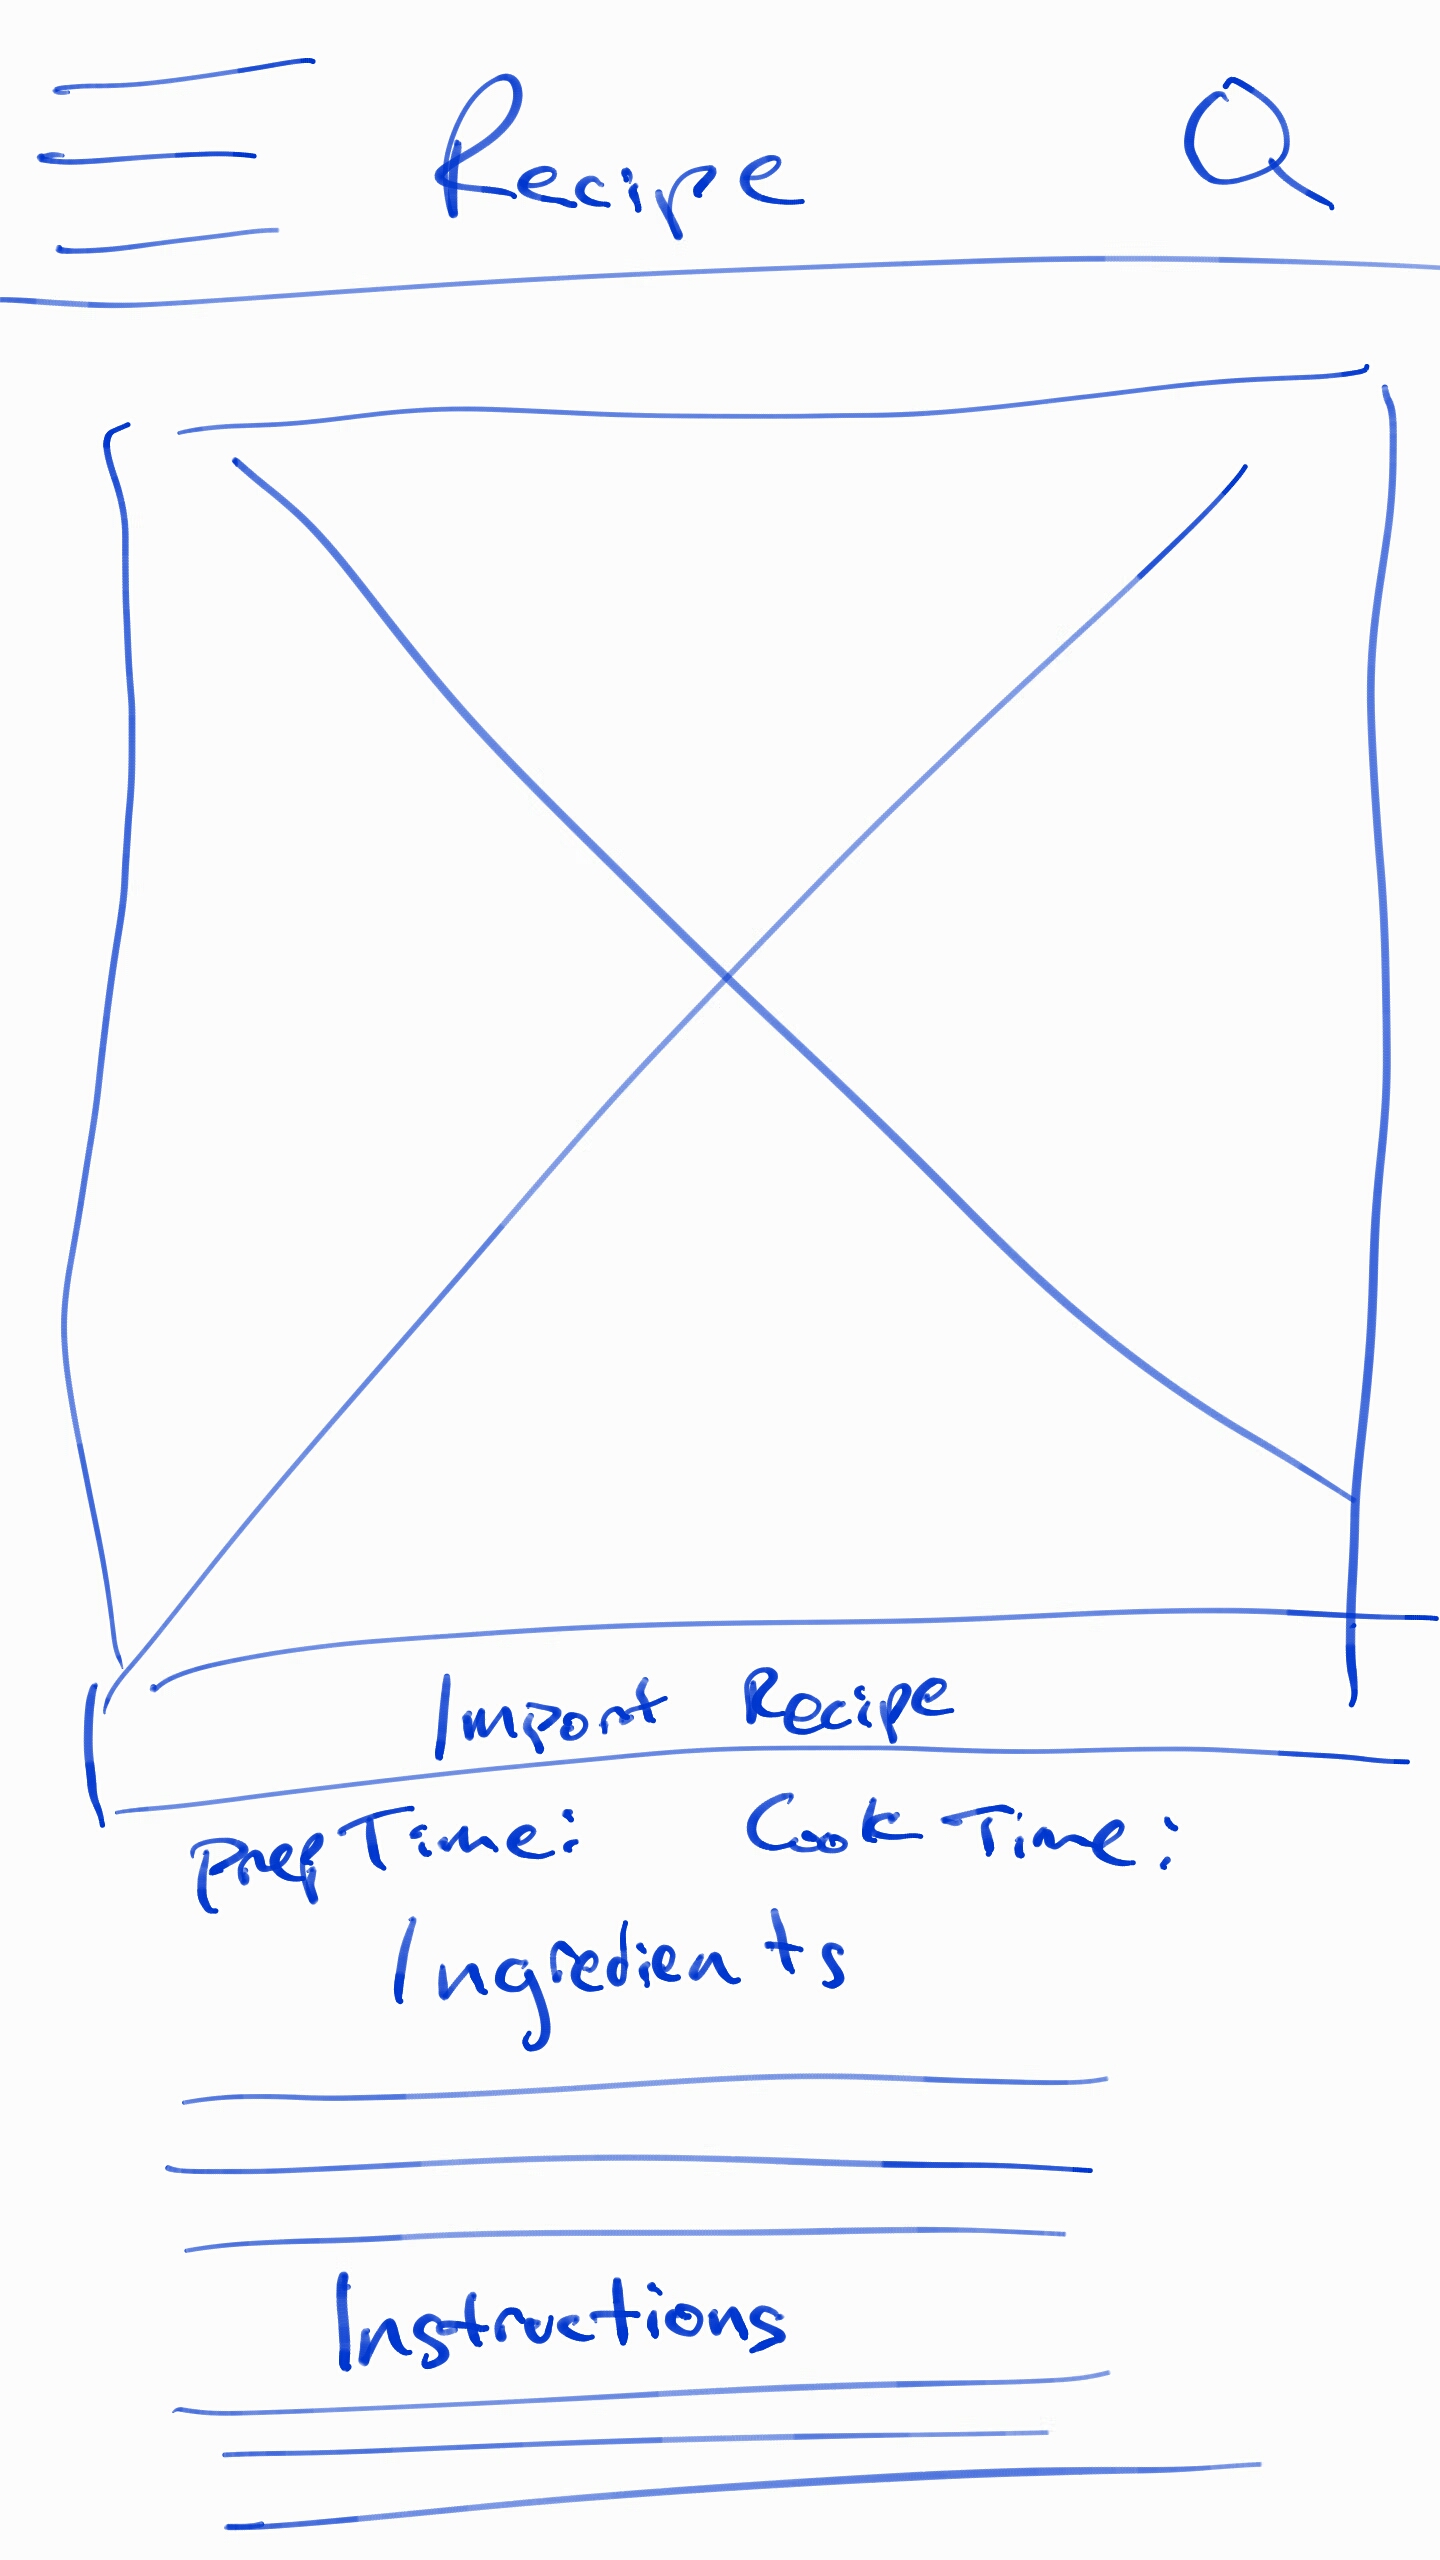 Recipe
Import Recipe
Prep Time: Cook Time:
Ingredients
Instructions